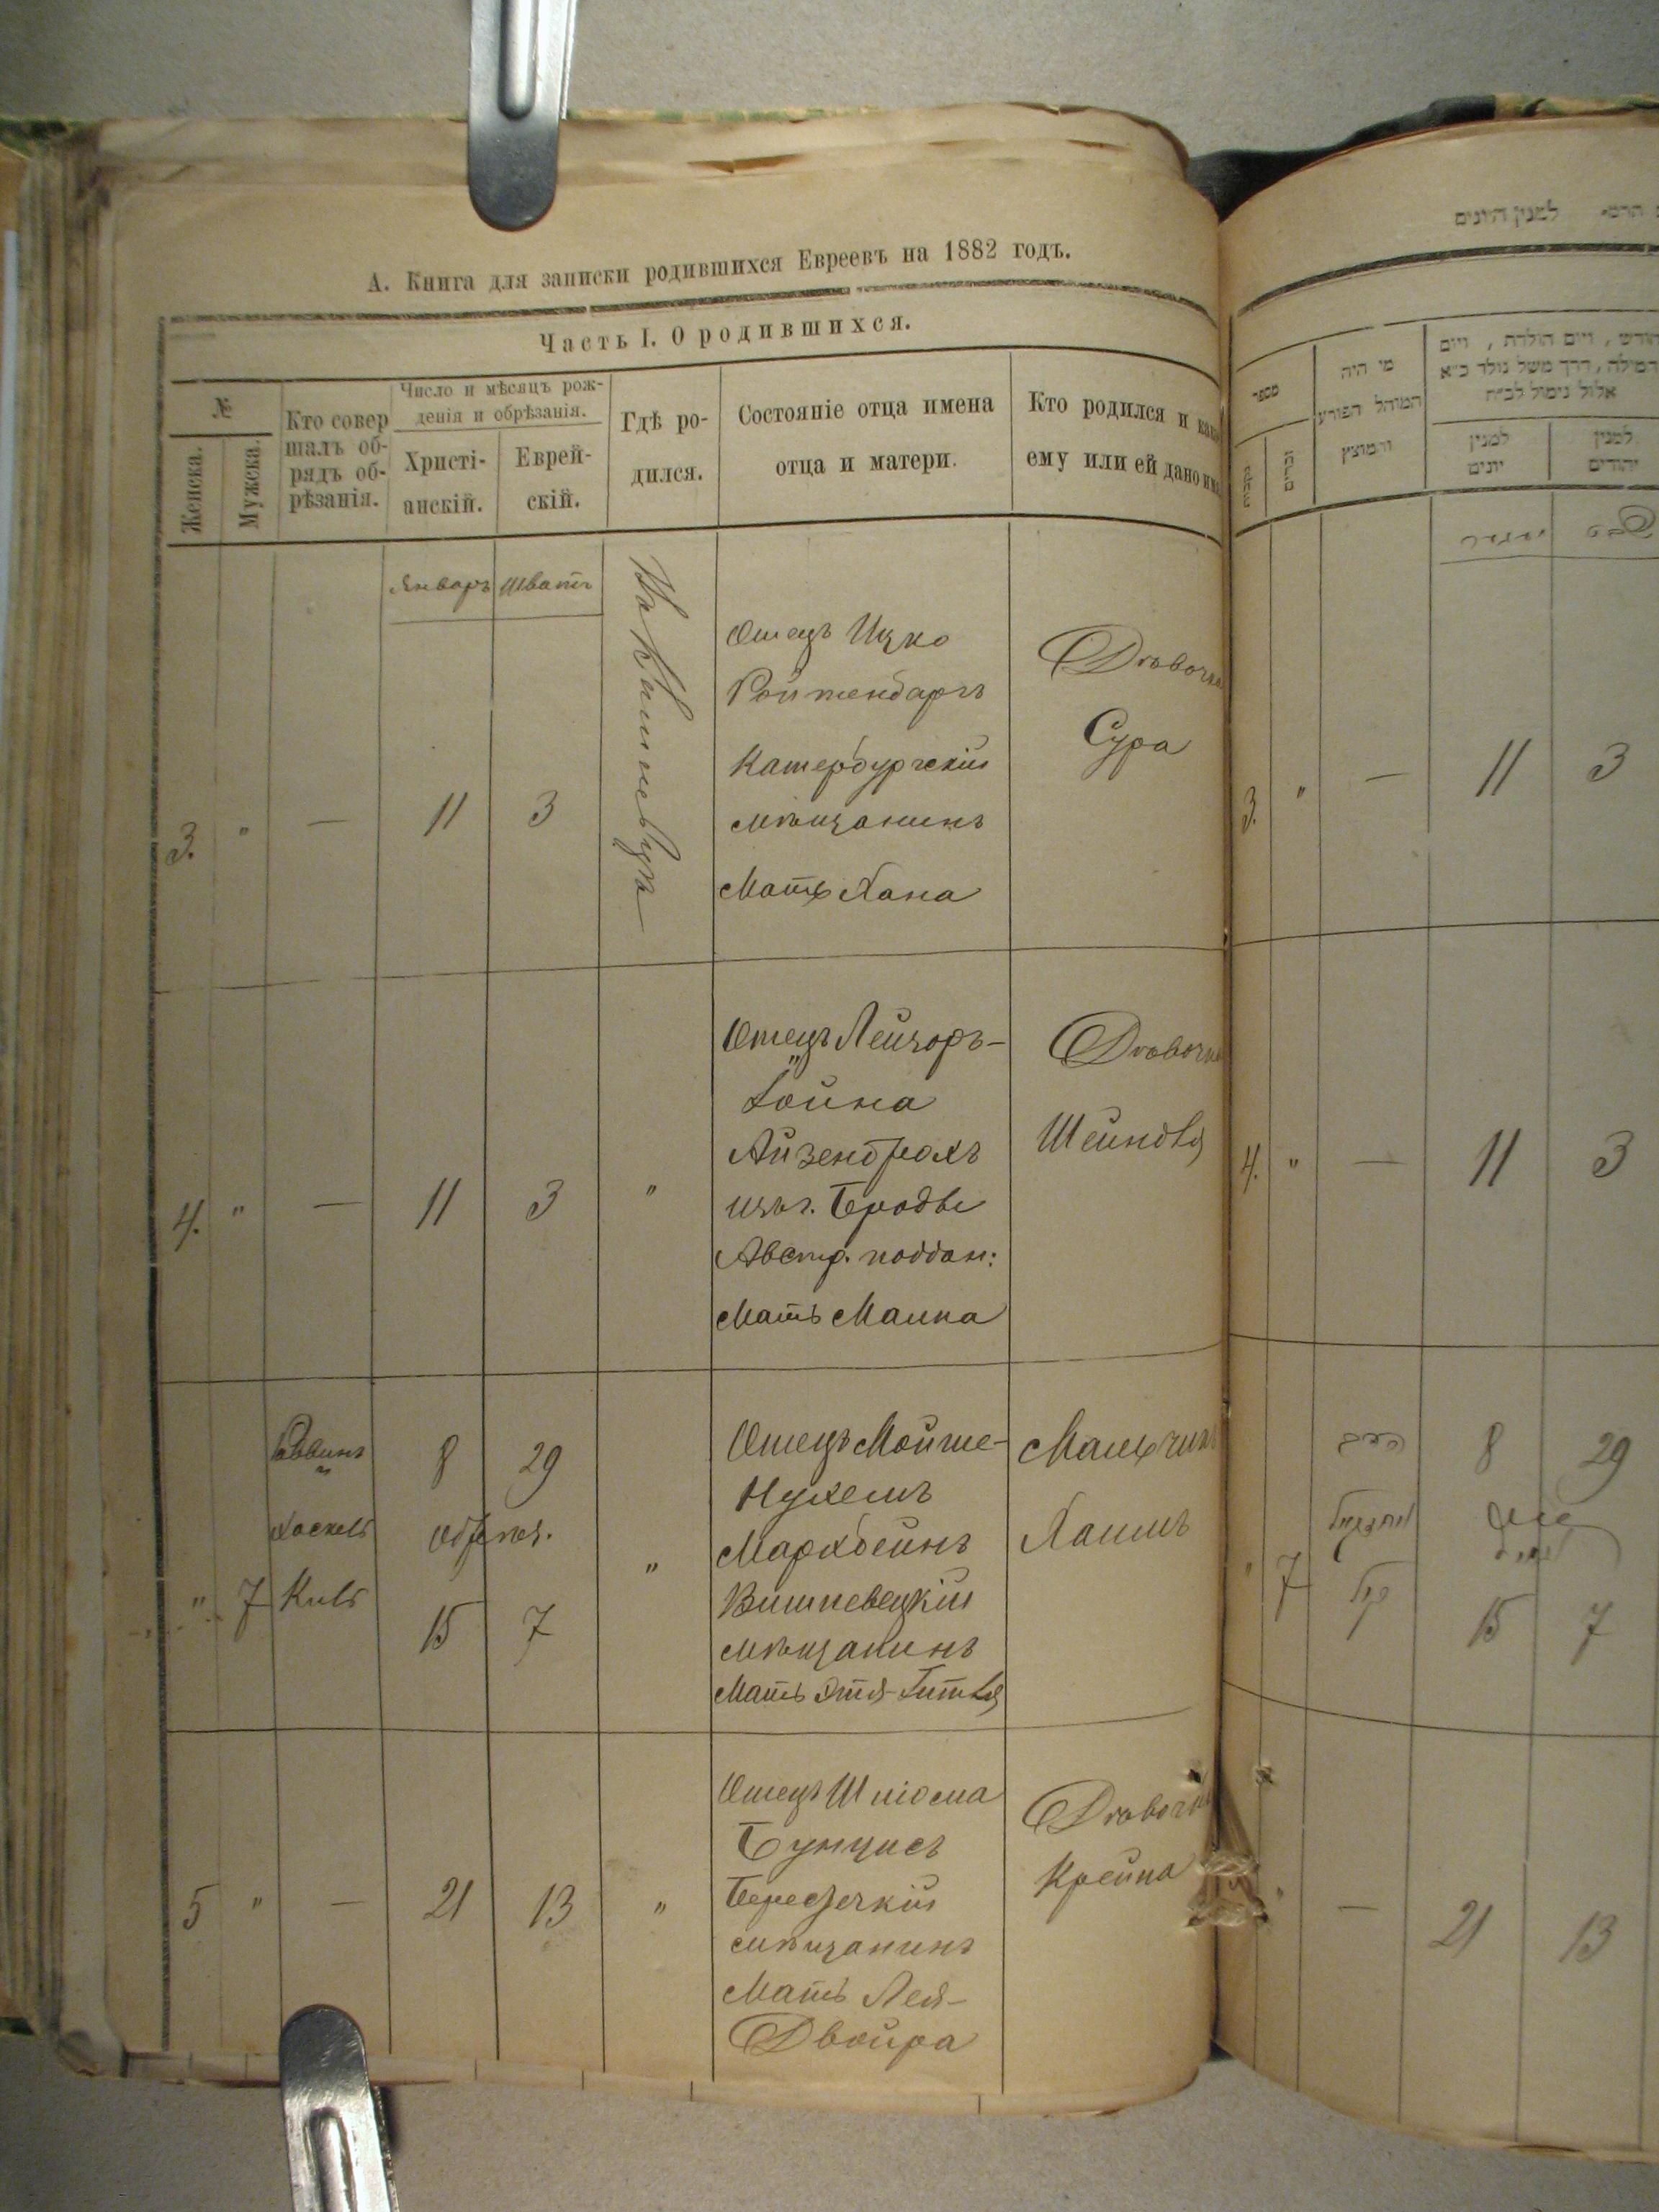 А. Книга для записки родившихся Евреевъ на 1882 годъ.
Часть I. О родившихся.
№
Женска.
Мужеска.
Кто совер
шалъ об-
рядъ об-
рѣзанія.
Число и мѣсяцъ рож-
денія и обрѣзанія.
Христі-
анскій.
Еврей-
скій.
Гдѣ ро-
дился.
Состояніе отца имена
отца и матери.
Кто родился и как
ему или ей дано им
Январь Шватъ
3. " — 11 3
Отецъ Ицко
Ройтенбаргъ
Катербургскій
мѣщанинъ
Мать Хана
Дѣвочка
Сура
4. " — 11 3 "
Отецъ Лейзоръ-
Іойна
Айзендрахъ
изъ г. Бродъ
Австр. поддан:
Мать Малка
Дѣвочка
Шейндля
" 7
Раввинъ
и
Хаскель
8 29
обрѣзан.
15 7
"
Отецъ Мойше-
Нухемъ
Мархбейнъ
Вишневецкій
мѣщанинъ
Мать Этя-Гитля
Мальчикъ
Хаимъ
5 " — 21 13 "
Отецъ Шліома
Бунцисъ
Берестечкій
мѣщанинъ
Мать Лея-
Двойра
Дѣвочка
Крейна
למנין היונים
מספר
נקבות
זכרים
מי היה
המוהל הפורע
והמוצץ
חודש, ויום הולדת, ויום
המילה, דרך משל נולד כ״א
אלול נימול לכ״ח
למנין
יונים
למנין
יהודים
יאנואר שבט
3. " — 11 3
4. " — 11 3
" 7
הרב
8 29
15 7
" — 21 13